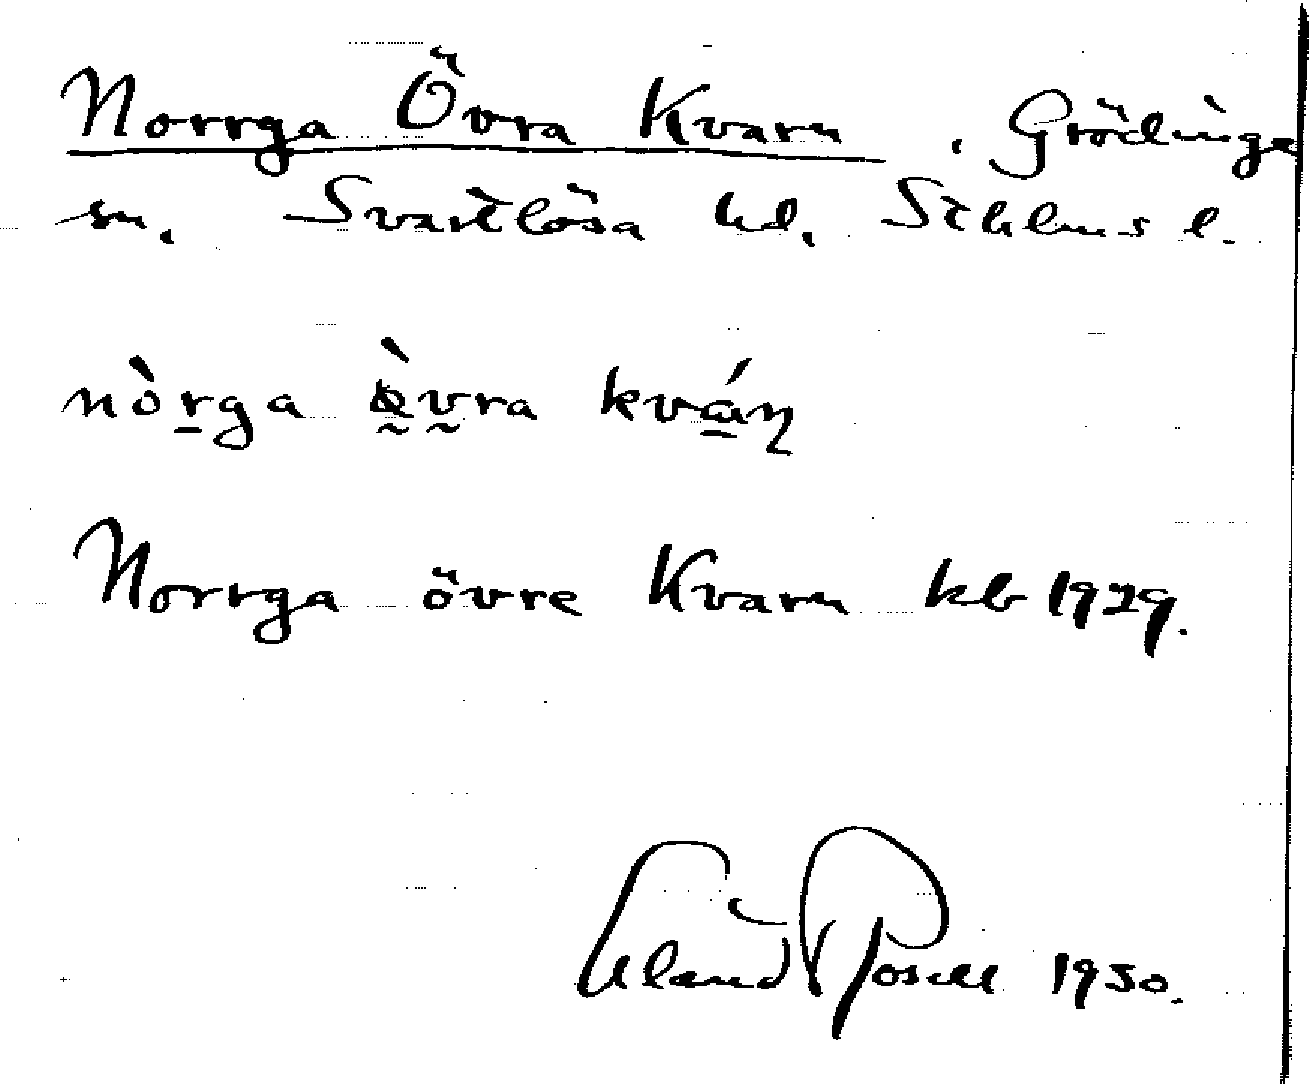 Norrga Övra Kvarn . Grödinge
sn. Svartlösa hd. Sthlms l.
nòr̠ga ö̰̀v̰ra kvá̠ɳ
Norrga övre Kvarn kb 1929.
Erland Rosell 1950.